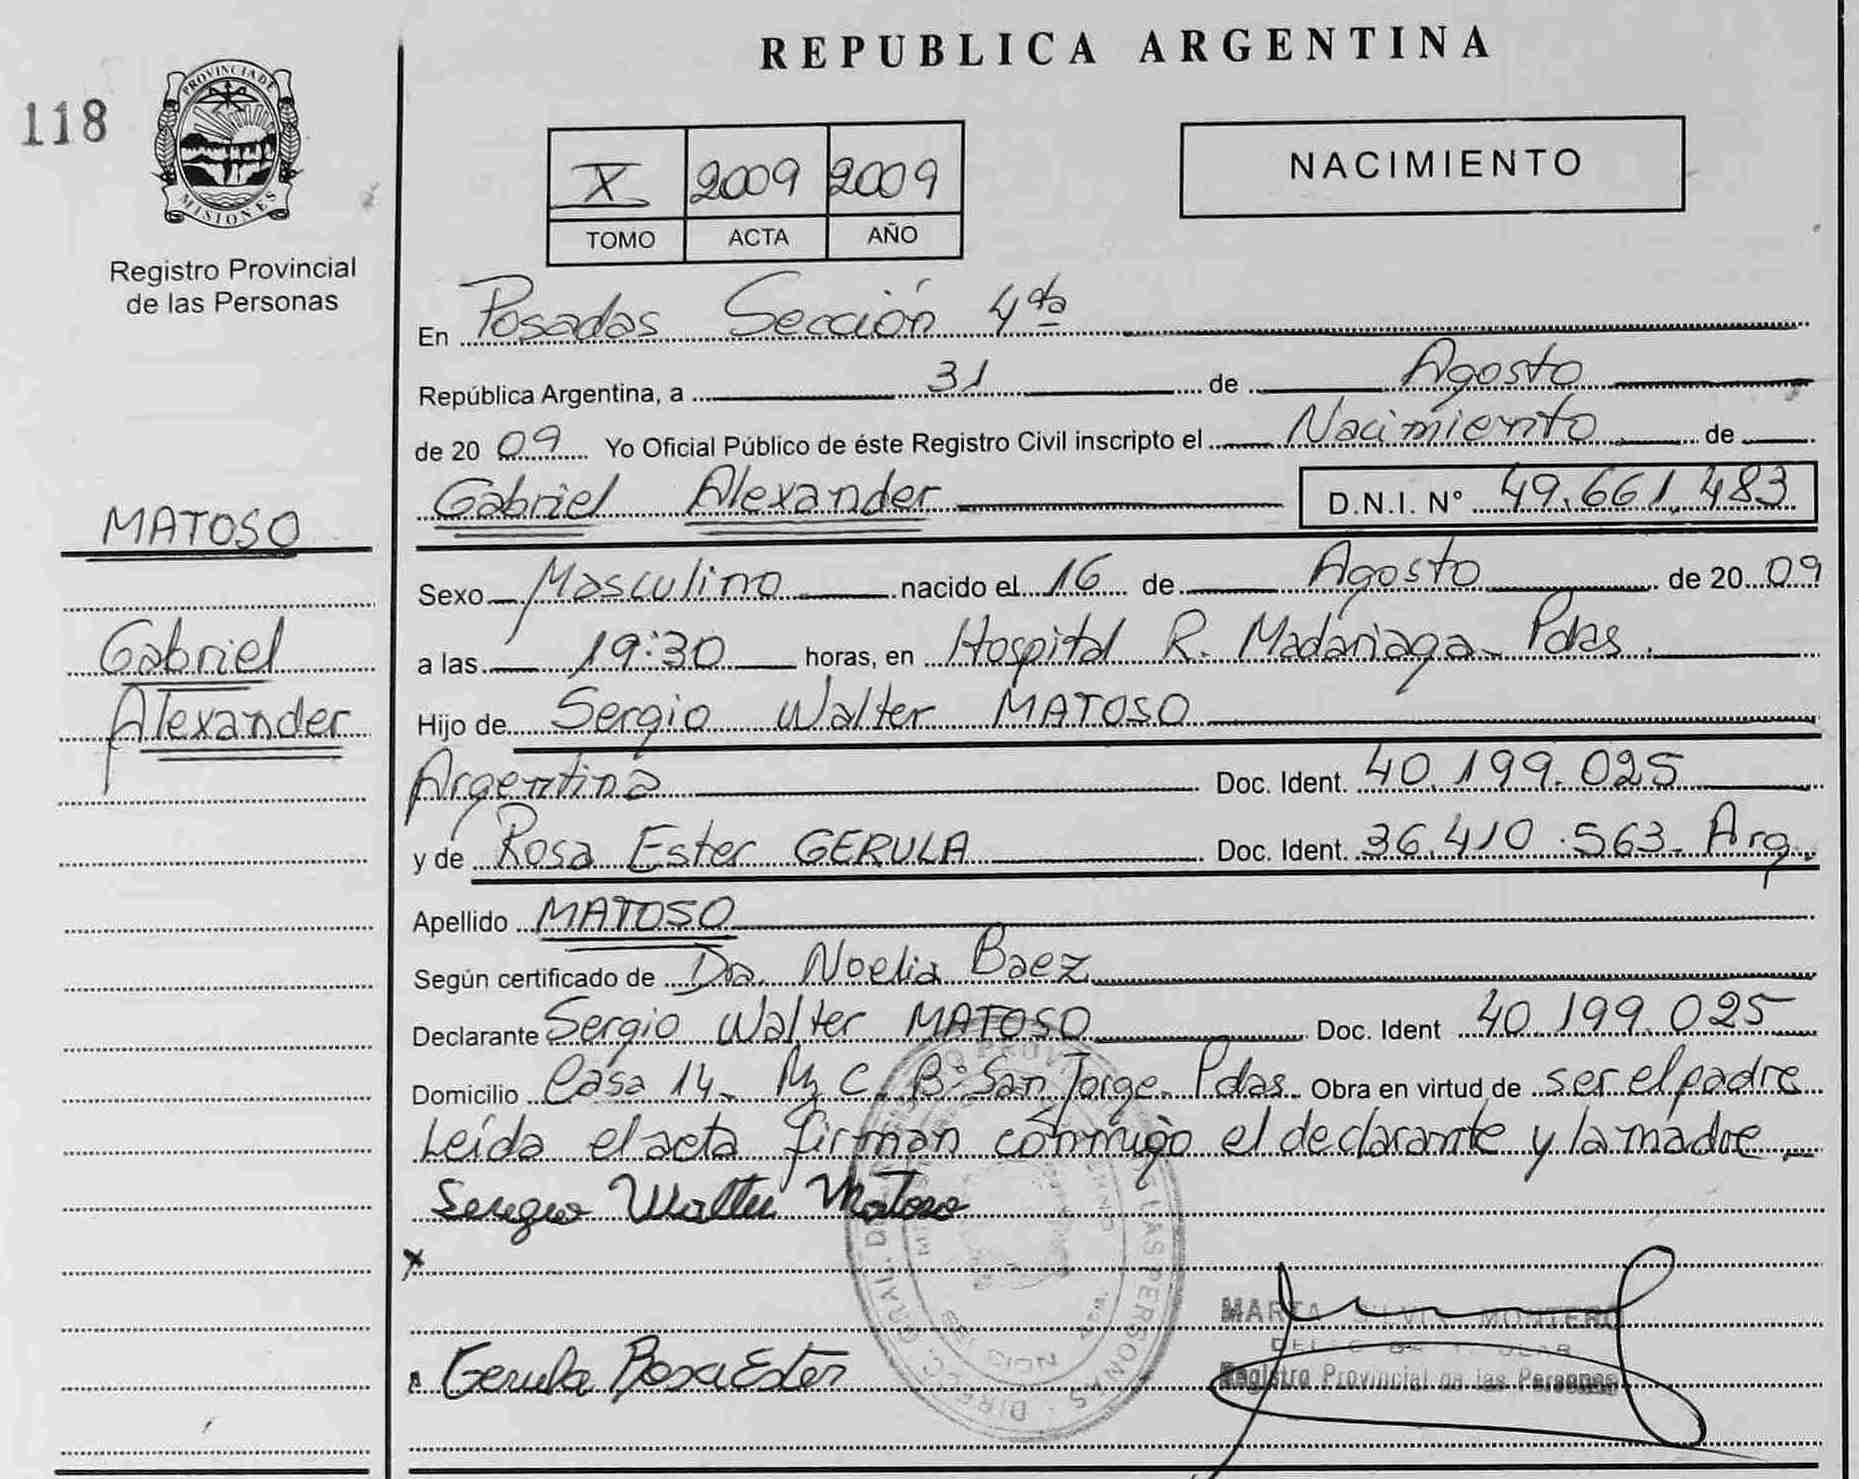 REPUBLICA ARGENTINA
118
PROVINCIA DE
MISIONES
Registro Provincial
de las Personas
X 2009 2009
TOMO ACTA AÑO
NACIMIENTO
En Posadas Sección 4ta
República Argentina, a 31 de Agosto
de 2009 Yo Oficial Público de éste Registro Civil inscripto el Nacimiento de
Gabriel Alexander D.N.I. N° 49.661.483
MATOSO
Gabriel
Alexander
Sexo Masculino nacido el 16 de Agosto de 2009
a las 19:30 horas, en Hospital R. Madariaga - Pdas.
Hijo de Sergio Walter MATOSO
Argentina Doc. Ident. 40.199.025
y de Rosa Ester GERULA Doc. Ident. 36.410.563 - Arg.
Apellido MATOSO
Según certificado de Dra. Noelia Baez
Declarante Sergio Walter MATOSO Doc. Ident 40.199.025
Domicilio Casa 14 - Mz C. B° San Jorge - Pdas. Obra en virtud de ser el padre
Leída el acta firman conmigo el declarante y la madre -
Sergio Walter Matoso
Gerula Rosa Ester
MARTA SILVIA MONTERO
Registro Provincial de las Personas